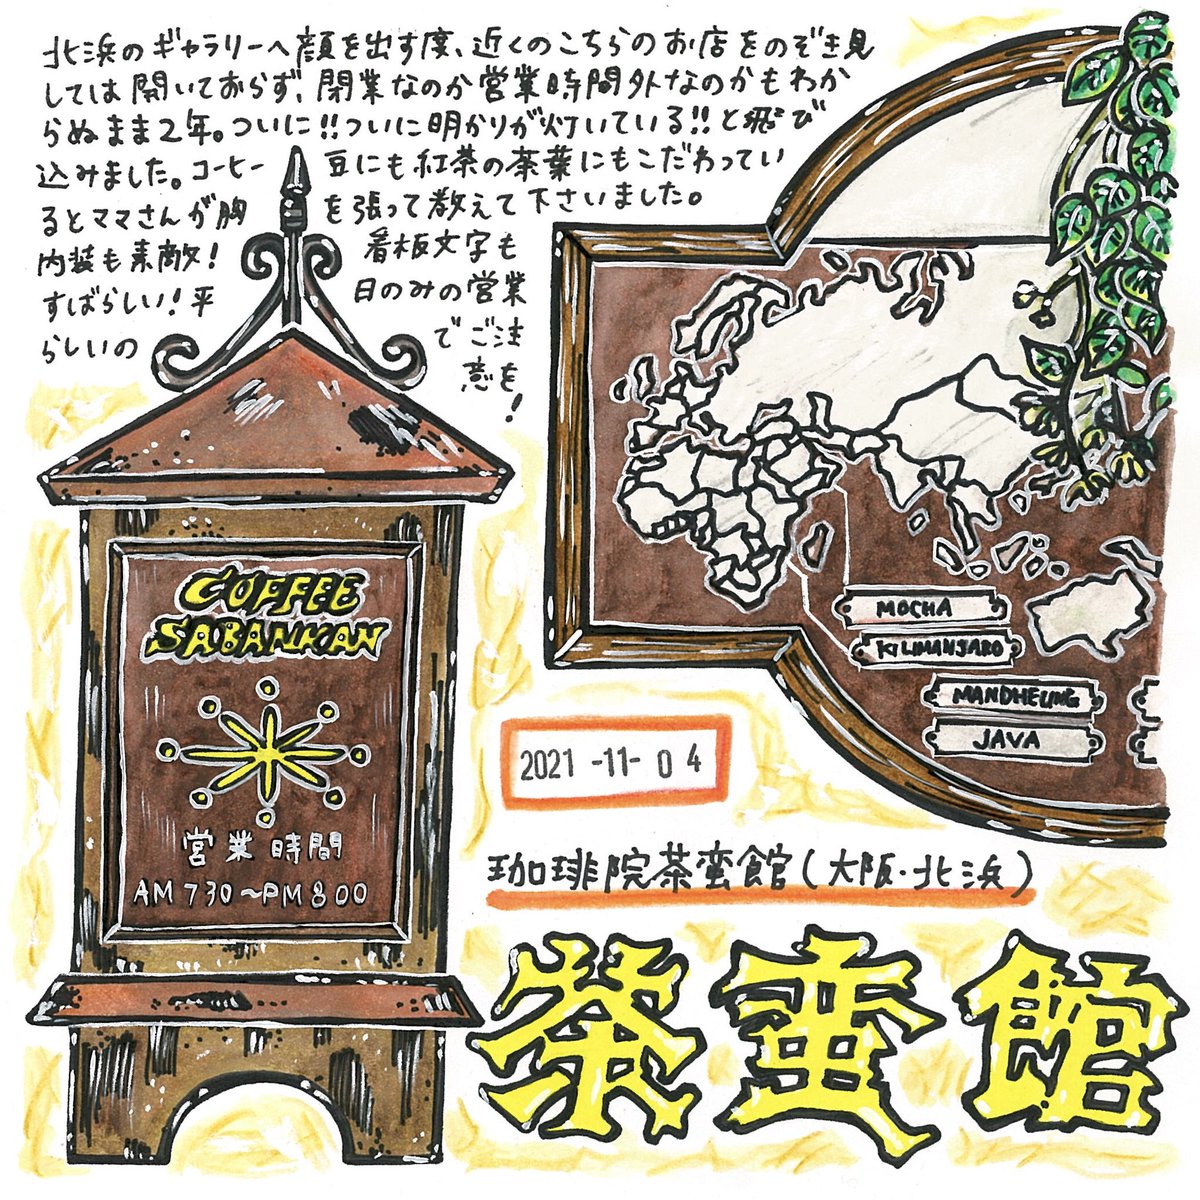 北浜のギャラリーへ顔を出す度、近くのこちらのお店をのぞき見
しては開いておらず、閉業なのか営業時間外なのかもわか
らぬまま2年。ついに!!ついに明かりが灯いている!!と飛び
込みました。コーヒー豆にも紅茶の茶葉にもこだわってい
るとママさんが胸を張って教えて下さいました。
内装も素敵!看板文字も
すばらしい!平日のみの営業
らしいのでご注
意を!
COFFEE
SABANKAN
営業時間
AM 7 30〜PM 8 00
MOCHA
KILIMANJARO
MANDHELING
JAVA
2021 -11- 04
珈琲院茶蛮館(大阪・北浜)
茶蛮館